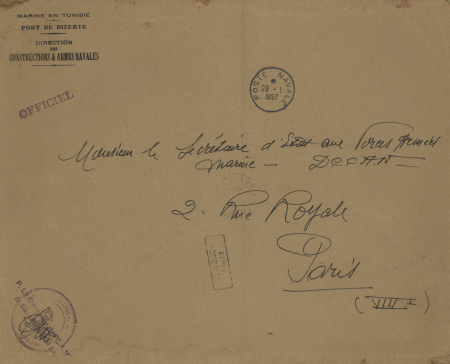 MARINE EN TUNISIE
PORT DE BIZERTE
DIRECTION
DES
CONSTRUCTIONS & ARMES NAVALES
OFFICIEL
POSTE NAVALE
28 - 1
1957
Monsieur le Secrétaire d'Etat aux Forces Armées
Marine - DCCAN
2. Rue Royale
Paris
(VIIIe)